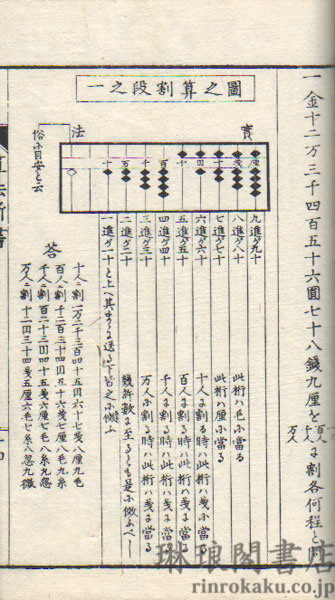 一金十二万三千四百五十六圓七十八錢九厘を十人百人千人万人に割各何程と問
圖之算割段之一
實
法
俗ニ目安と云
厘
錢
十
円
十
百
千
万
十
九進が九十
八進が八十
七進が七十
六進が六十
五進が五十
四進が四十
三進が三十
二進が二十
一進が一十と上へ其まゝ送る下皆之ニ傚ふ
此桁ハ毛ニ當る
此桁ハ厘ニ當る
十人ニ割る時ハ此桁ハ戔ニ當る
百人ニ割る時ハ此桁ハ戔ニ當る
千人ニ割る時ハ此桁ハ戔ニ當る
万人ニ割る時ハ此桁ハ戔ニ當る
幾許数ニ至るとも是ニ傚ふべし
答
十人ニ割 一万二千三百四十五円六十七戔八厘九毛
百人ニ割 千二百三十四円五十六戔七厘八毛九糸
千人ニ割 百二十三円四十五戔六厘七毛八糸九忽
万人ニ割 十二円三十四戔五厘六毛七糸八忽九微
琳琅閣書店
rinrokaku.co.jp